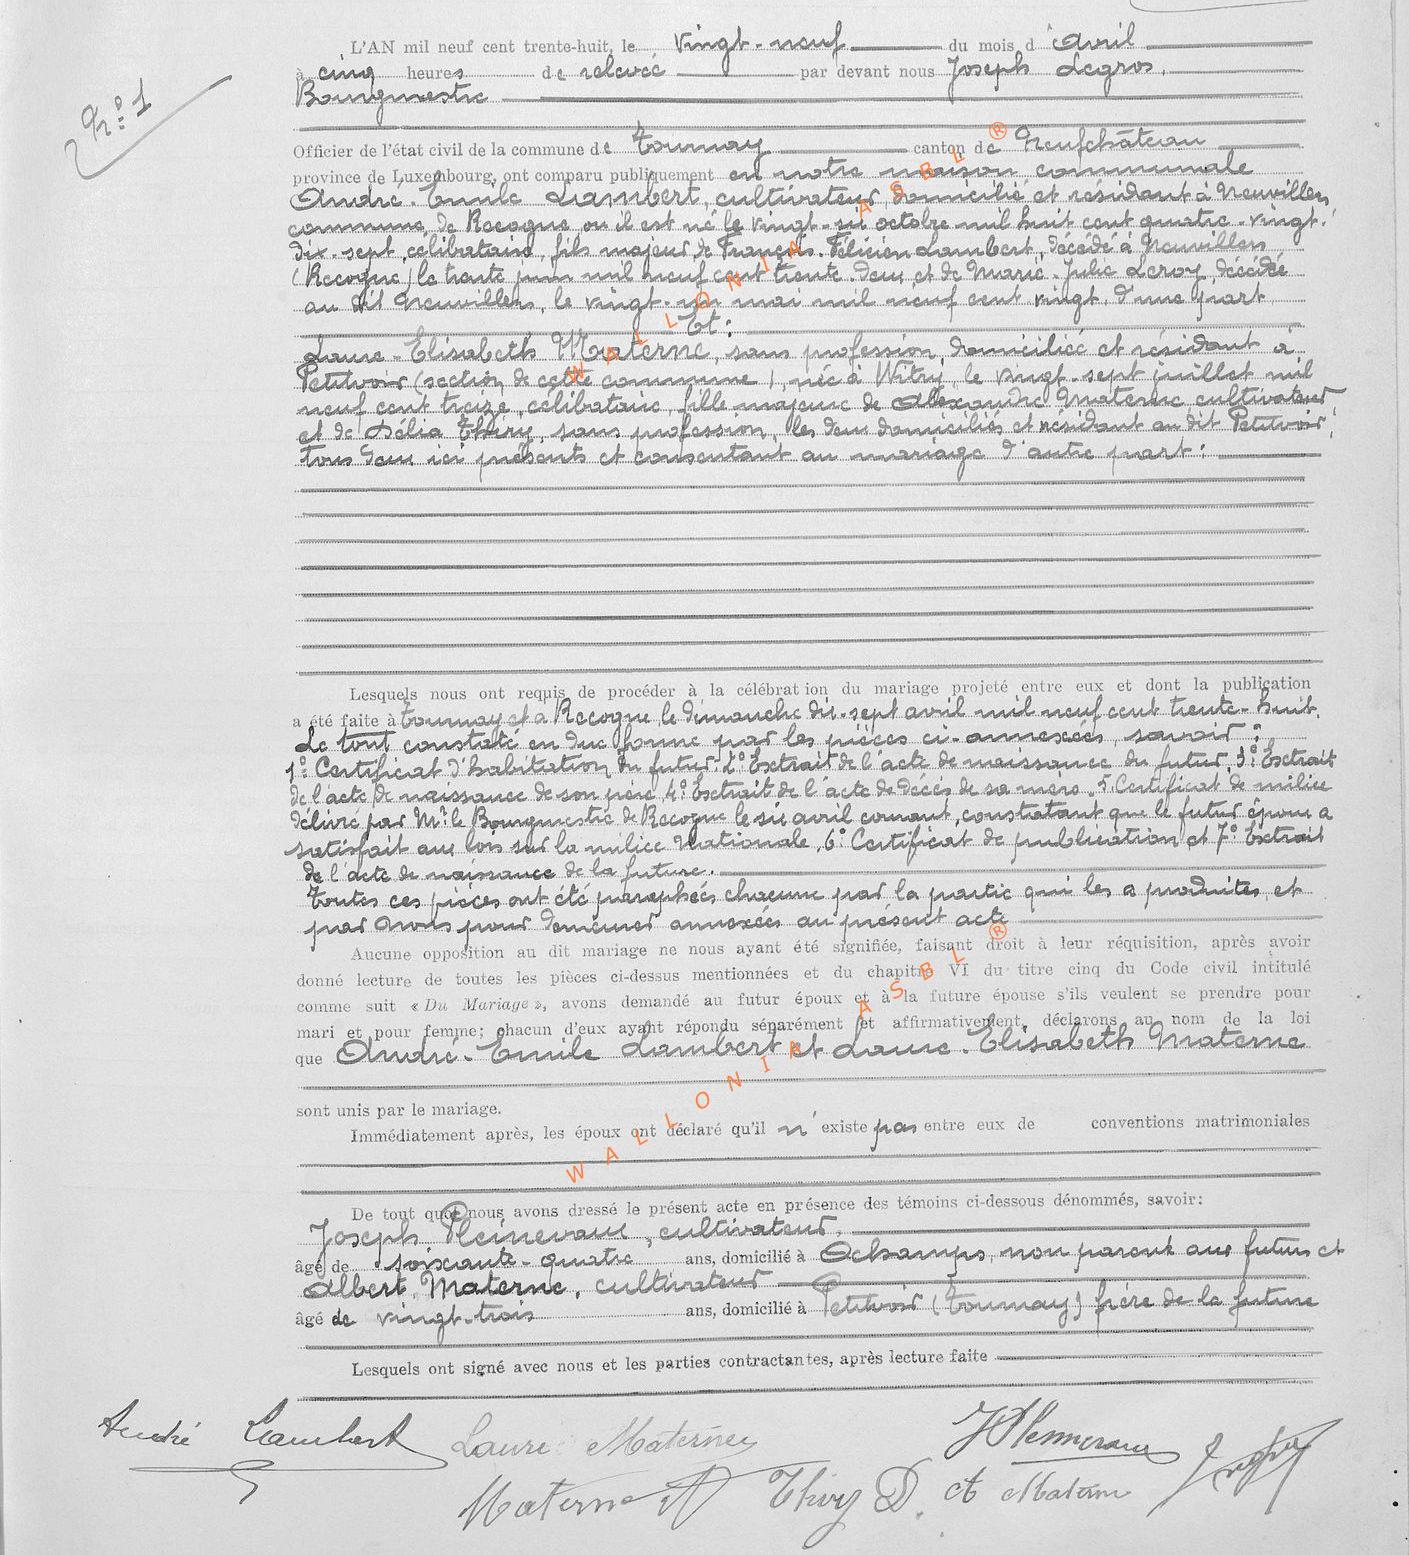 N° 1
L'AN mil neuf cent trente-huit, le vingt-neuf du mois d'avril
à cinq heures de relevée par devant nous Joseph Legros,
Bourgmestre
Officier de l'état civil de la commune de Tournay canton de Neufchâteau
province de Luxembourg, ont comparu publiquement en notre maison communale
André-Emile Lambert, cultivateur, domicilié et résidant à Neuvillers,
commune de Recogne, ou il est né le vingt-six octobre mil huit cent quatre-vingt-
dix-sept, célibataire, fils majeur de François-Félicien Lambert, décédé à Neuvillers
(Recogne) le trente juin mil neuf cent trente-deux et de Marie-Julie Leroy, décédée
au dit Neuvillers, le vingt-un mai mil neuf cent vingt, d'une part
Et:
Laure-Elisabeth Materne, sans profession, domiciliée et résidant à
Petitvoir (section de cette commune), née à Witry, le vingt-sept juillet mil
neuf cent treize, célibataire, fille majeure de Alexandre Materne cultivateur
et de Délia Thiry, sans profession, les deux domiciliés et résidant au dit Petitvoir,
tous deux ici présents et consentant au mariage d'autre part:
Lesquels nous ont requis de procéder à la célébration du mariage projeté entre eux et dont la publication
a été faite à Tournay et à Recogne, le dimanche dix-sept avril mil neuf cent trente-huit.
Le tout constaté en due forme par les pièces ci-annexées, savoir:
1° Certificat d'habitation du futur. 2° Extrait de l'acte de naissance du futur, 3° Extrait
de l'acte de naissance de son père, 4° Extrait de l'acte de décès de sa mère. 5° Certificat de milice
délivré par Mr le Bourgmestre de Recogne le six avril courant, constatant que le futur époux a
satisfait aux lois sur la milice Nationale, 6° Certificat de publication et 7° Extrait
de l'acte de naissance de la future.
Toutes ces pièces ont été paraphées chacune par la partie qui les a produites, et
par Nous pour demeurer annexées au présent acte
Aucune opposition au dit mariage ne nous ayant été signifiée, faisant droit à leur réquisition, après avoir
donné lecture de toutes les pièces ci-dessus mentionnées et du chapitre VI du titre cinq du Code civil intitulé
comme suit « Du Mariage », avons demandé au futur époux et à la future épouse s'ils veulent se prendre pour
mari et pour femme; chacun d'eux ayant répondu séparément et affirmativement, déclarons au nom de la loi
que André-Emile Lambert et Laure-Elisabeth Materne
sont unis par le mariage.
Immédiatement après, les époux ont déclaré qu'il n'existe pas entre eux de conventions matrimoniales
De tout quoi nous avons dressé le présent acte en présence des témoins ci-dessous dénommés, savoir:
Joseph Pleinevaux, cultivateur,
âgé de soixante-quatre ans, domicilié à Ochamps, non parent aux futurs et
Albert Materne, cultivateur
âgé de vingt-trois ans, domicilié à Petitvoir (Tournay) frère de la future
Lesquels ont signé avec nous et les parties contractantes, après lecture faite
André Lambert Laure Materne
Materne A Thiry D. A Materne
WALLONIA ASBL ®
WALLONIA ASBL ®